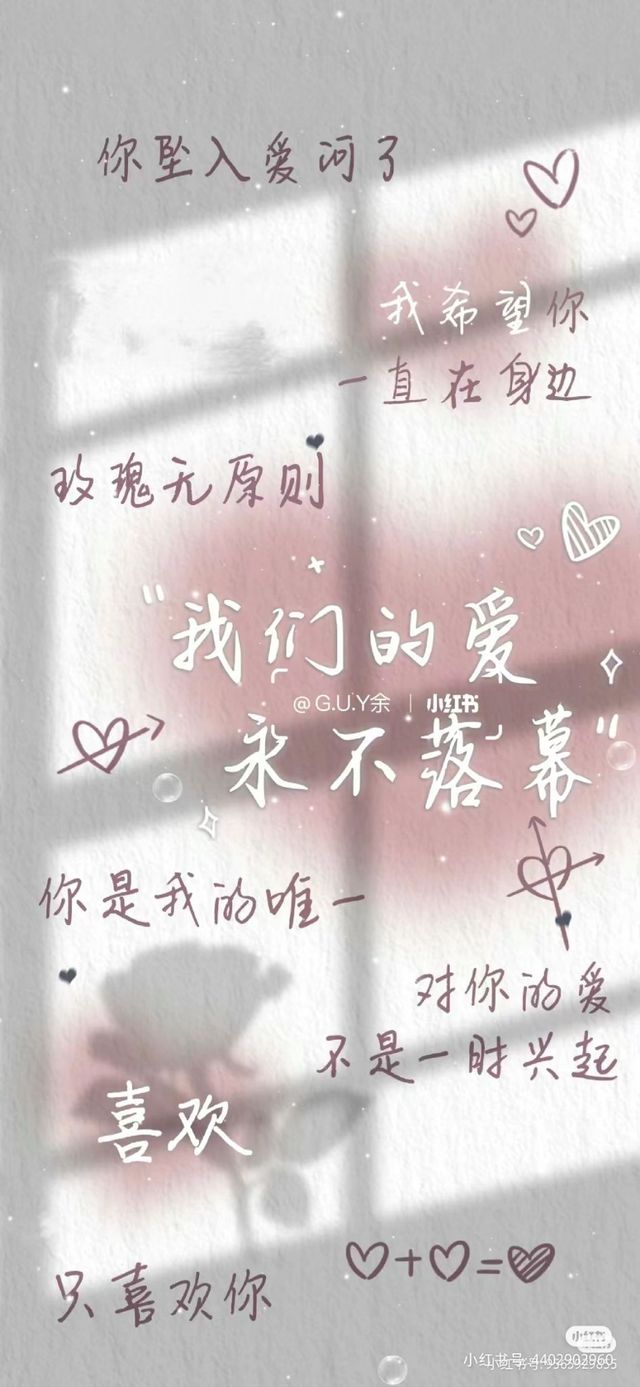 你坠入爱河了
我希望你
一直在身边
玫瑰无原则
"我们的爱
@G.U.Y余 | 小红书
永不落幕"
你是我的唯一
对你的爱
不是一时兴起
喜欢
只喜欢你
♡+♡=♥
小红书
小红书号:4402902960